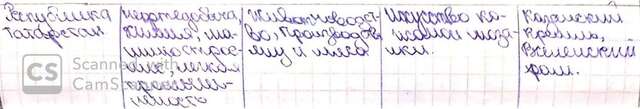 Республика
Татарстан
нефтедобыча,
химия, ма-
шинострое-
ние, легкая
промышлен-
ность
животноводст-
во, производств
му и мяса
искусство ко-
жаной моза-
ики.
Казанский
Кремль,
Вселенский
храм.
CS Scanned with
CamS